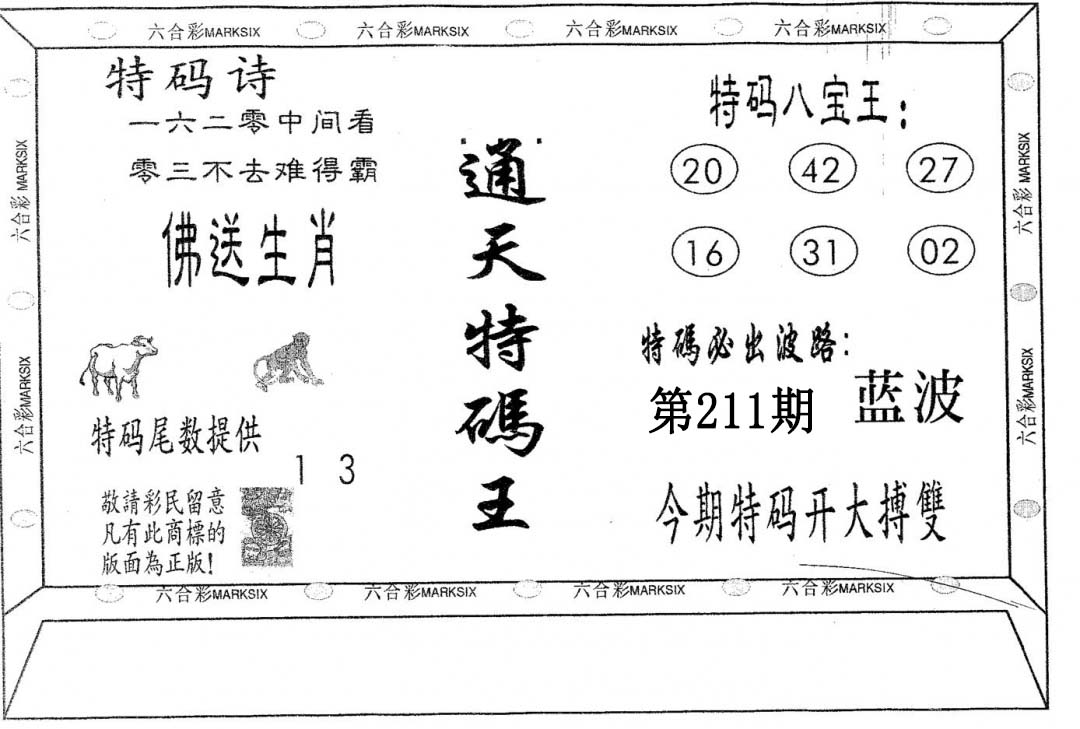 六合彩MARKSIX 六合彩MARKSIX 六合彩MARKSIX 六合彩MARKSIX
六合彩 MARKSIX
六合彩MARKSIX
特码诗
一六二零中间看
零三不去难得霸
佛送生肖
特码尾数提供
1 3
敬請彩民留意
凡有此商標的
版面為正版!
通天特碼王
特码八宝王:
20 42 27
16 31 02
特碼必出波路:
第211期 蓝波
今期特码开大搏雙
六合彩 MARKSIX
六合彩MARKSIX
六合彩MARKSIX 六合彩MARKSIX 六合彩MARKSIX 六合彩MARKSIX